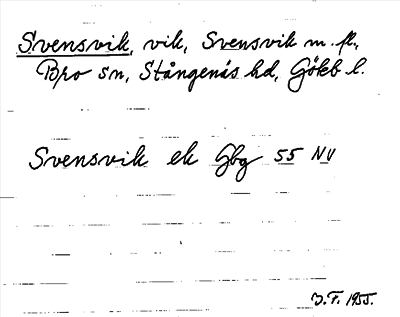 Svensvik, vik, Svensvik m. fl.,
Bro sn, Stångenäs hd, Götb l.
Svensvik ek Gbg 55 NV
J.F. 1955.